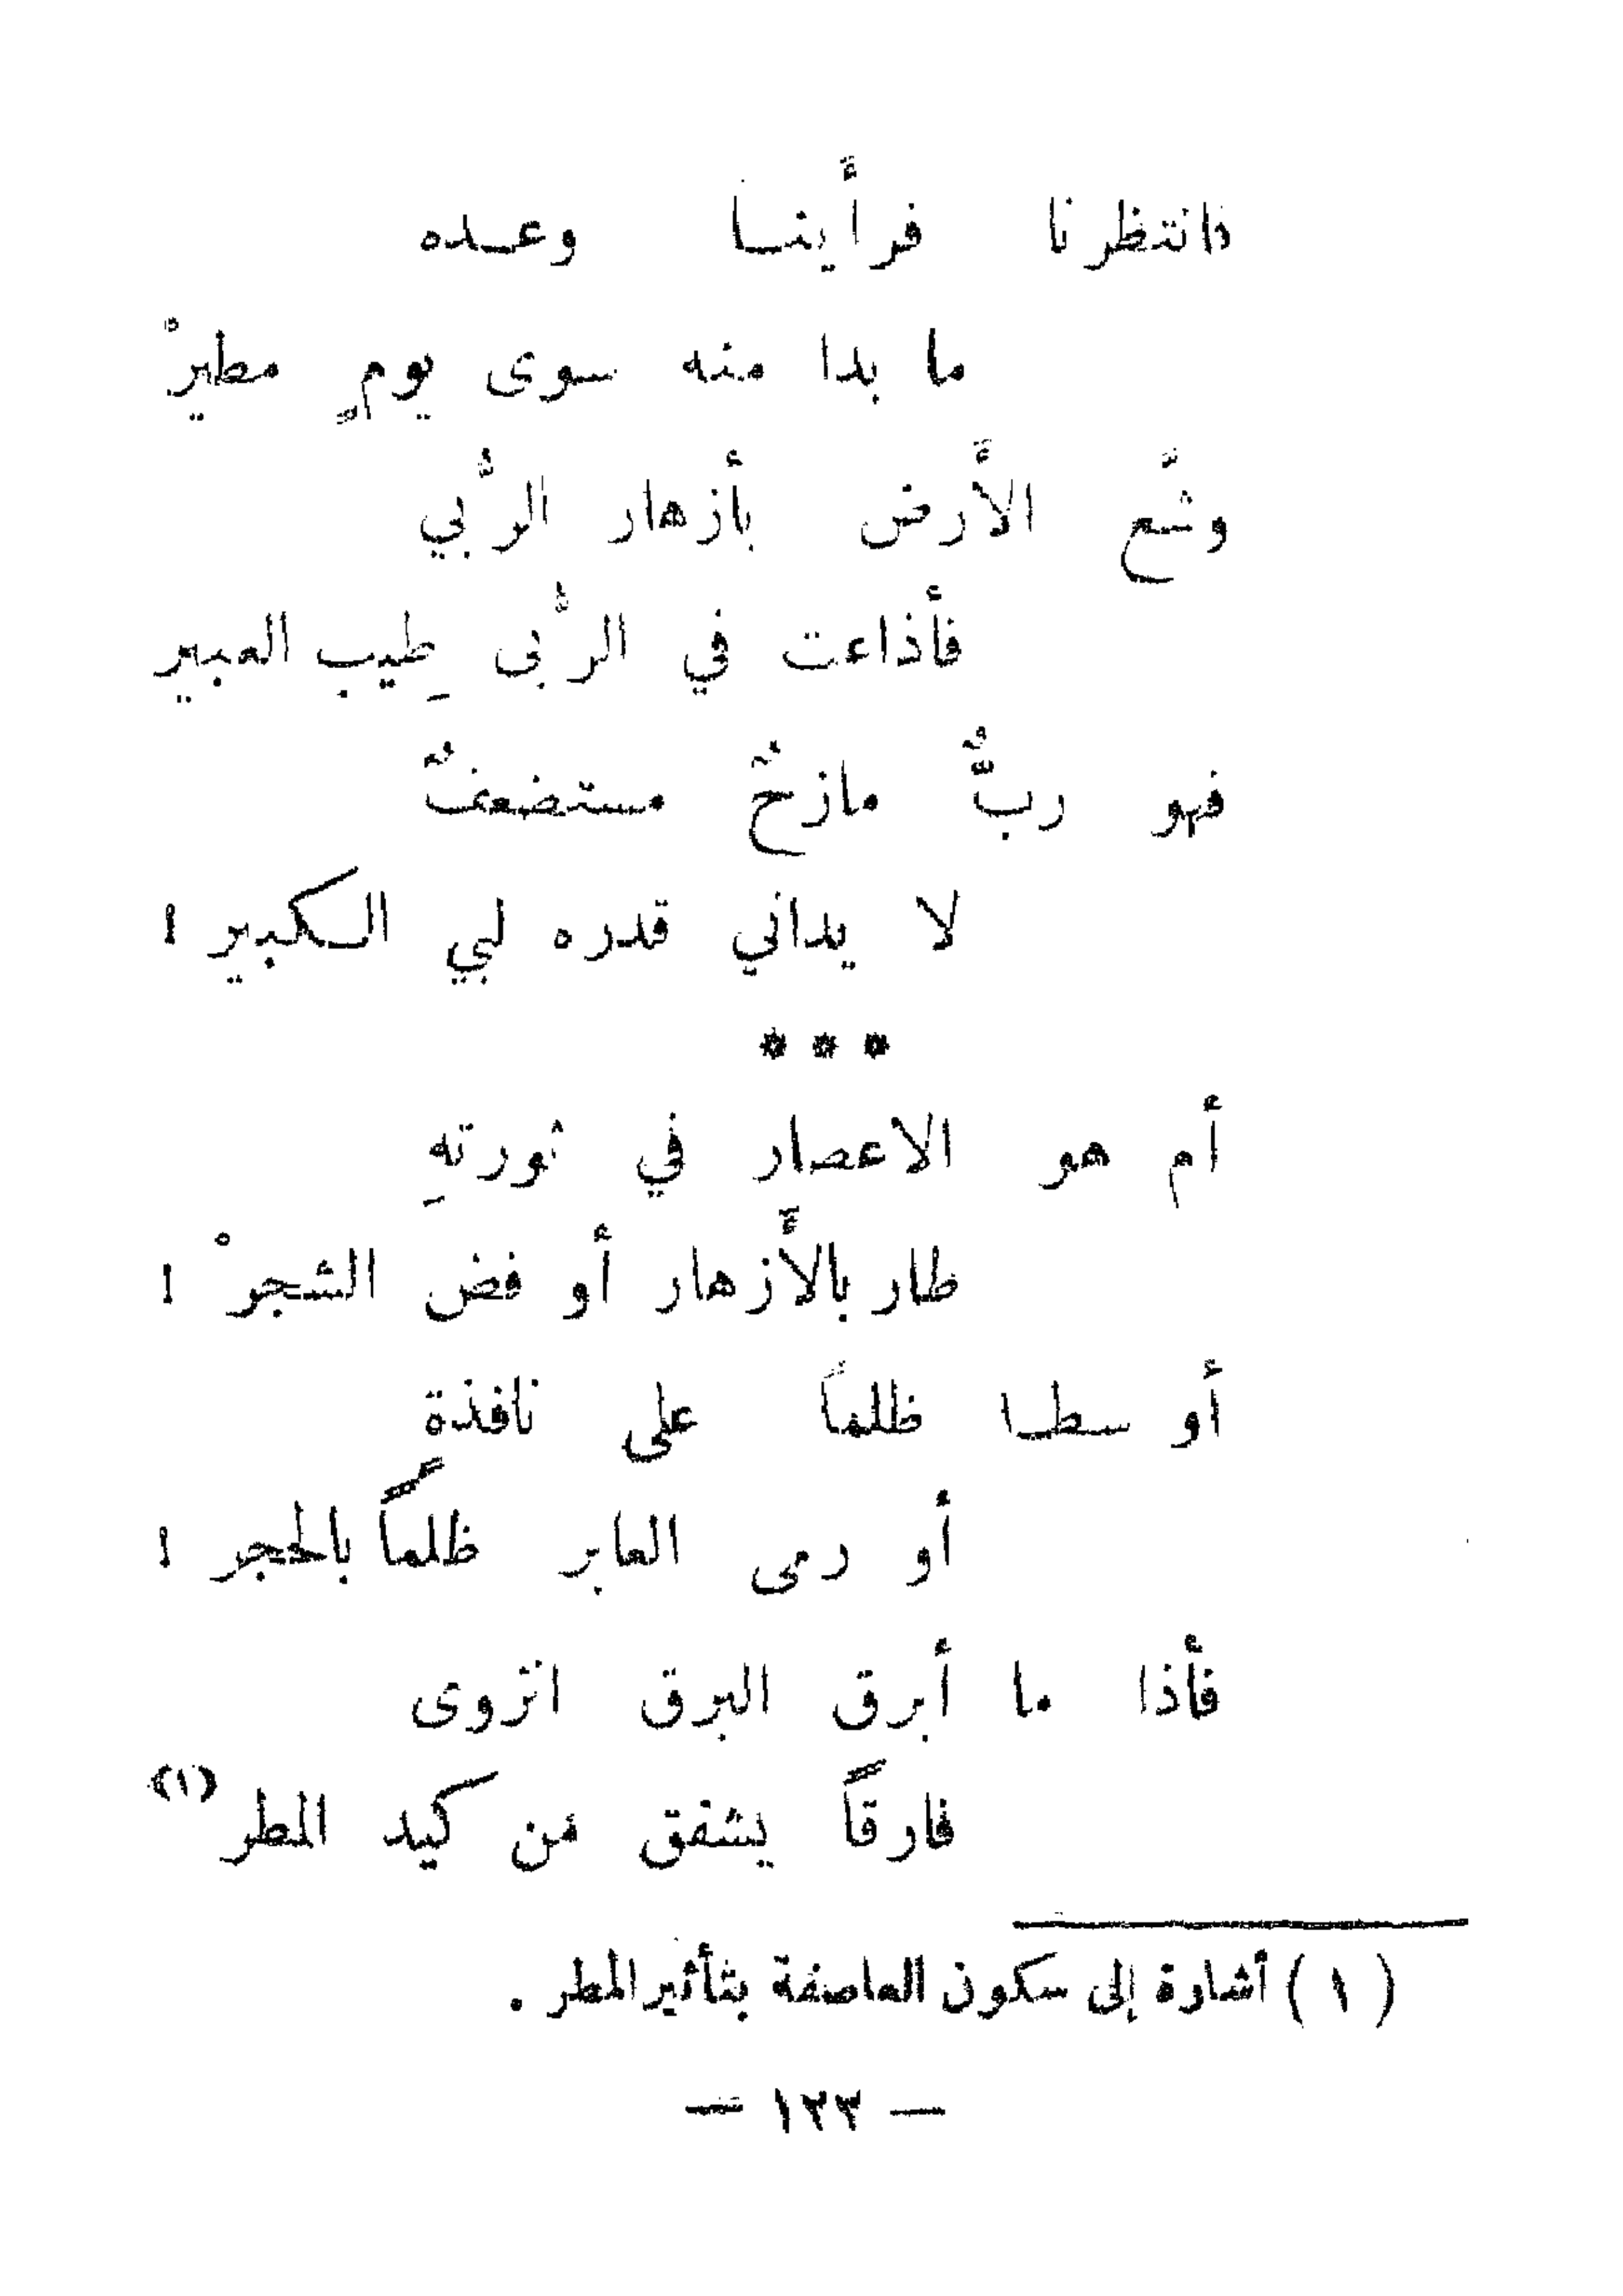 فانتظرنا فرأَينا وعده
ما بدا منه سوى يومٍ مطيرْ
وشَّع الأَرض بأزهار الرُّبي
فأذاعت في الرُّبى طِيب العبير
فهو ربٌّ مازحٌ مستضعفٌ
لا يداني قدره لبي الكبير !
* * *
أم هو الاعصار في ثورتهِ
طار بالأَزهار أو فض الشجرْ !
أو سطا ظلماً على نافذةٍ
أو رمى العابر ظلماً بالحجر !
فأذا ما أبرق البرق انزوى
فارقاً يشفق من كيد المطر (١)
( ١ ) أشارة إلى سكون العاصفة بتأثير المطر .
— ١٢٣ —